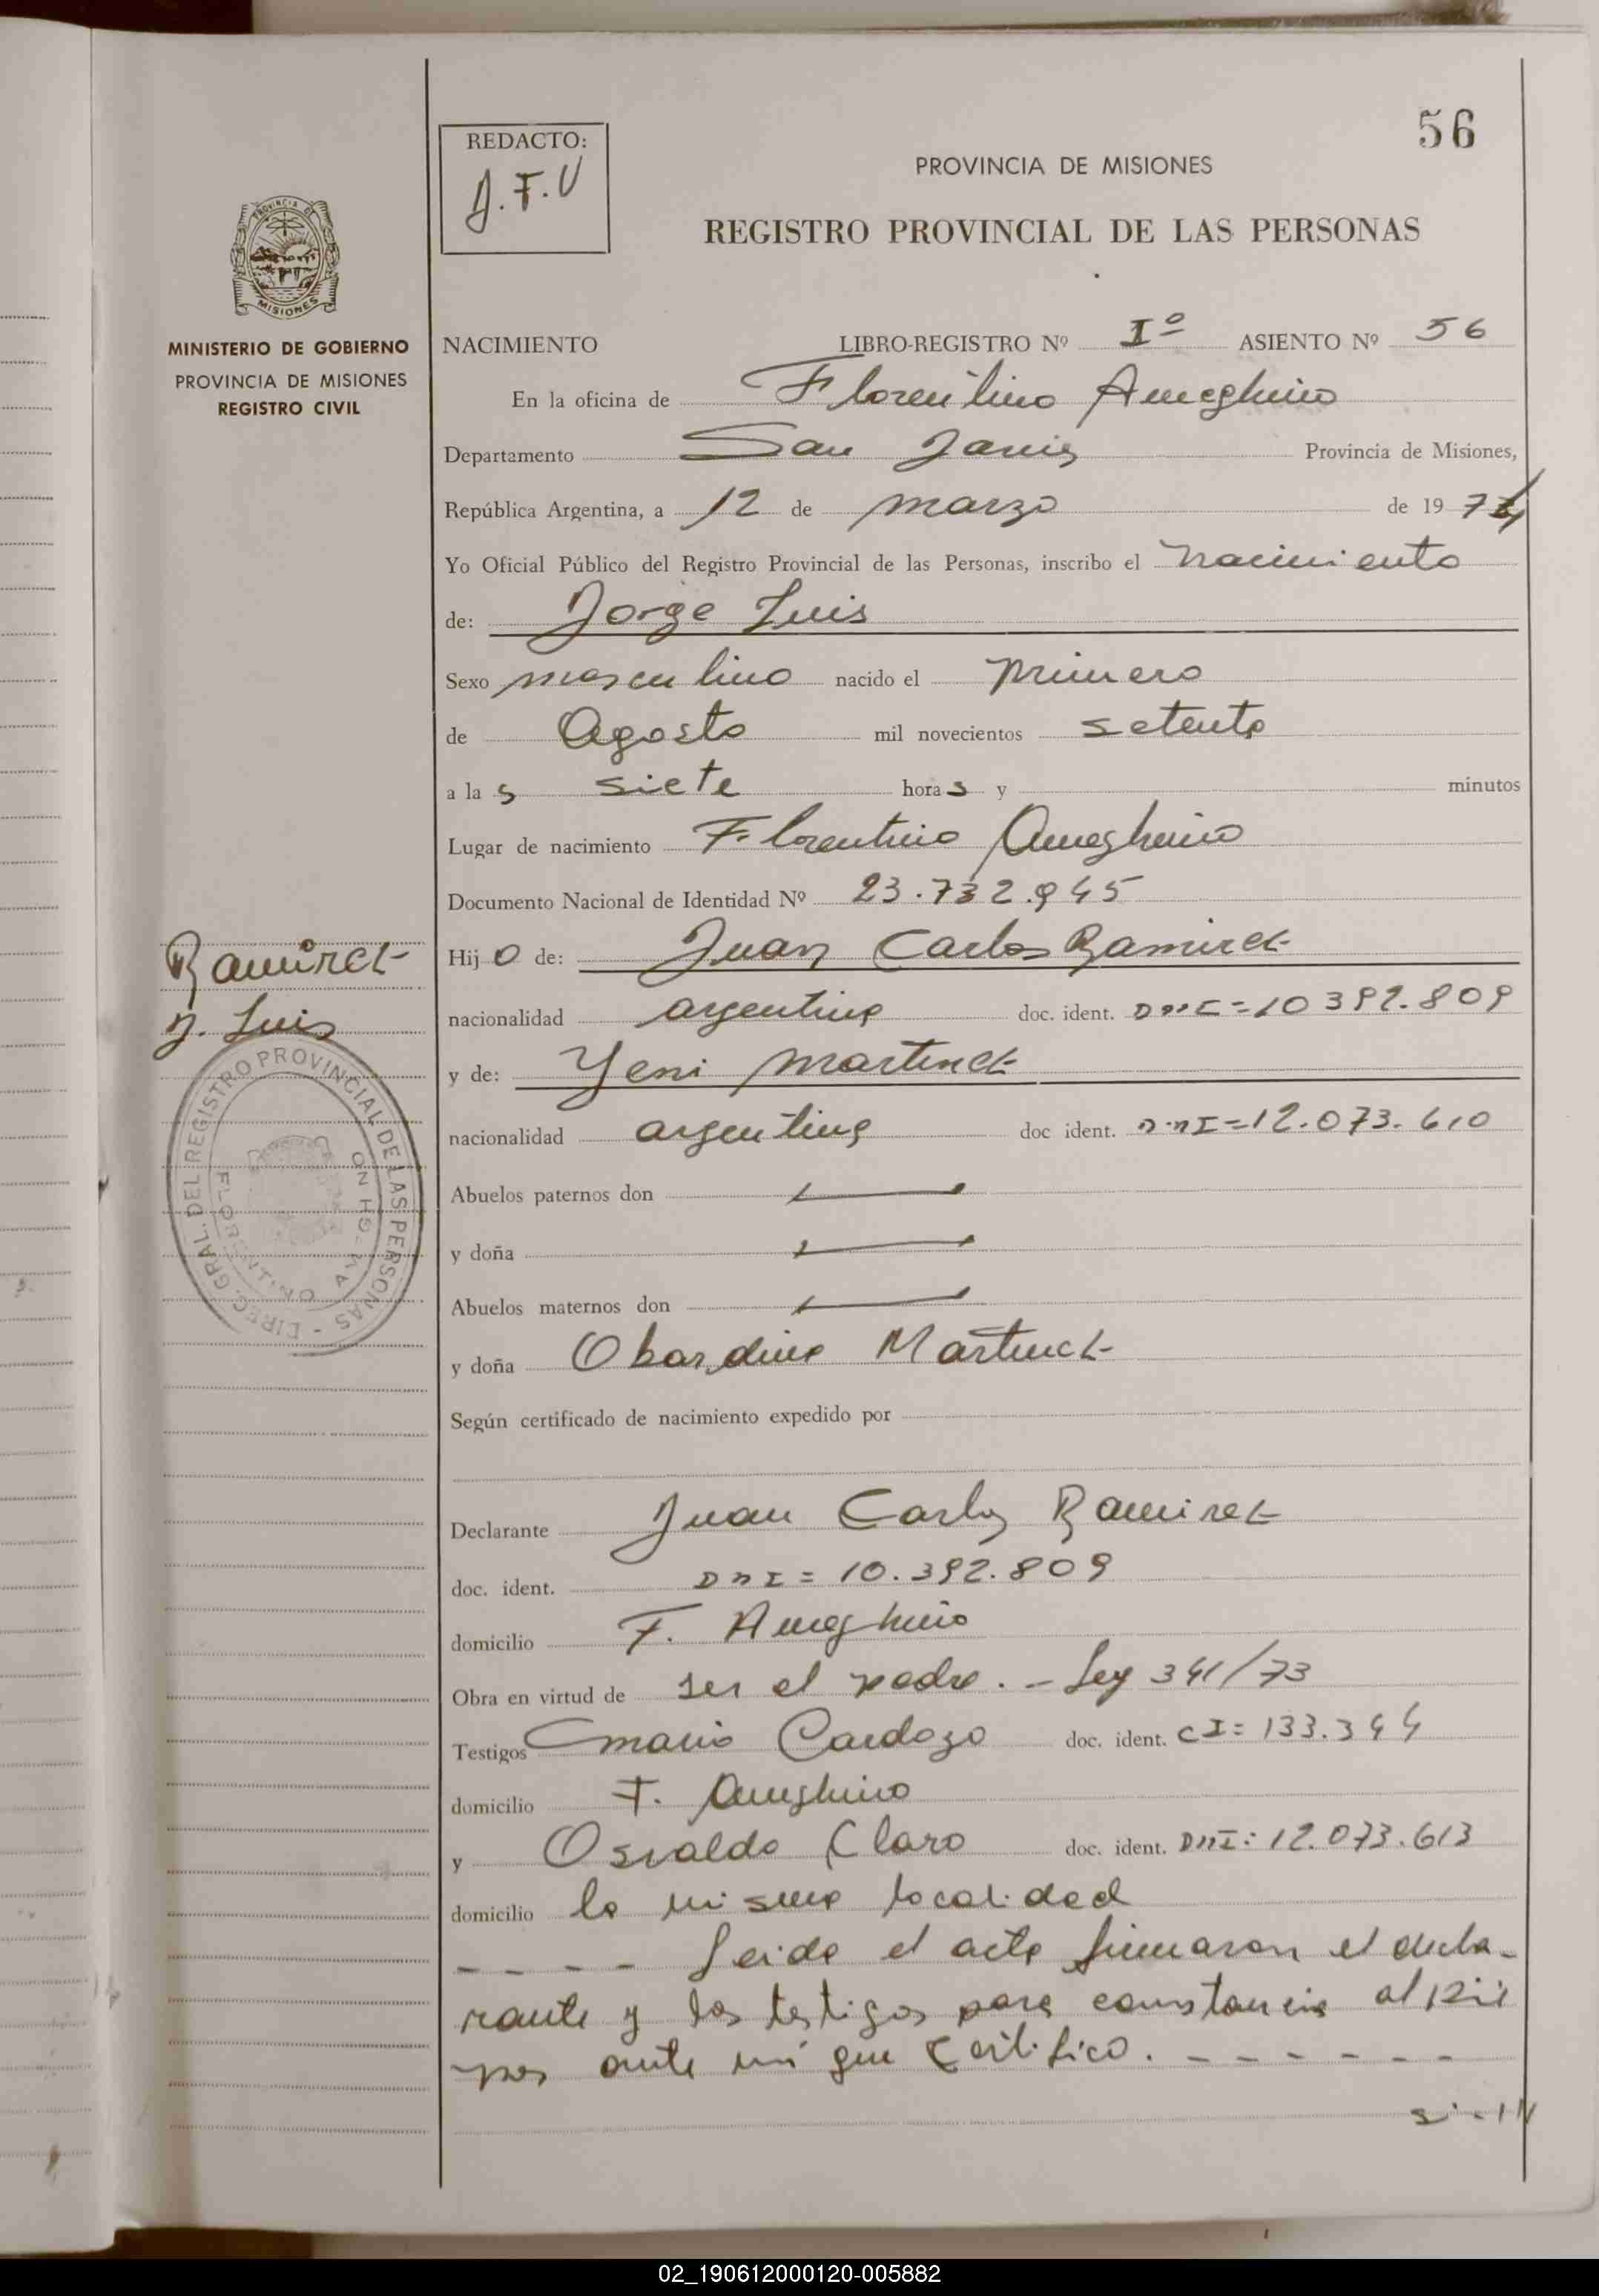 56
REDACTO:
J.F.V
PROVINCIA DE MISIONES
REGISTRO PROVINCIAL DE LAS PERSONAS
PROVINCIA DE
MISIONES
MINISTERIO DE GOBIERNO
PROVINCIA DE MISIONES
REGISTRO CIVIL
NACIMIENTO LIBRO-REGISTRO Nº Iº ASIENTO Nº 56
En la oficina de Florentino Ameghino
Departamento San Javier Provincia de Misiones,
República Argentina, a 12 de marzo de 19 74
Yo Oficial Público del Registro Provincial de las Personas, inscribo el nacimiento
de: Jorge Luis
Sexo masculino nacido el primero
de Agosto mil novecientos setenta
a la s siete hora s y minutos
Lugar de nacimiento Florentino Ameghino
Documento Nacional de Identidad Nº 23.732.945
Ramirez
J. Luis
Hij o de: Juan Carlos Ramirez
nacionalidad argentina doc. ident. DNI=10392.809
y de: Yeni Martinez
nacionalidad argentina doc ident. DNI=12.073.610
DIREC. GRAL. DEL REGISTRO PROVINCIAL DE LAS PERSONAS -
FLORENTINO AMEGHINO
Abuelos paternos don
y doña
Abuelos maternos don
y doña Obardina Martinez
Según certificado de nacimiento expedido por
Declarante Juan Carlos Ramirez
doc. ident. DNI = 10.392.809
domicilio F. Ameghino
Obra en virtud de ser el padre. - Ley 341/73
Testigos Mario Cardozo doc. ident. CI= 133.344
domicilio F. Ameghino
y Osvaldo Claro doc. ident. DNI: 12.073.613
domicilio la misma localidad
- - - - Leida el acta firmaron el decla-
rante y los testigos para constancia al pie
por ante mi que Certifico. - - - - - -
02_190612000120-005882